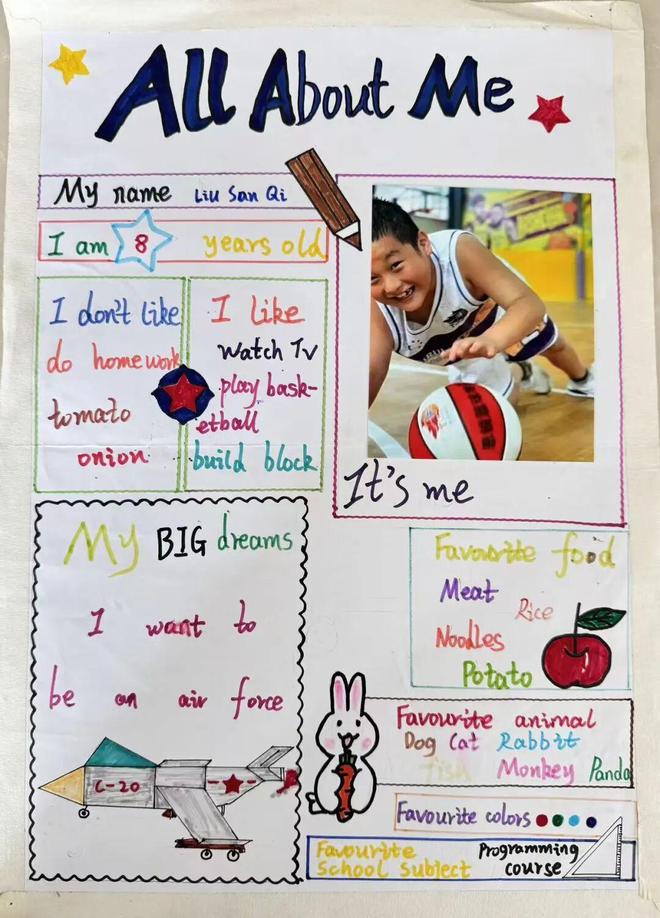 All About Me
My name Liu San Qi
I am 8 years old
I don't like
do homework
tomato
onion
I like
watch Tv
play bask-
etball
build block
It's me
My BIG dreams
I want to
be an air force
C-20
Favourite food
Meat
Rice
Noodles
Potato
Favourite animal
Dog Cat Rabbit
fish Monkey Panda
Favourite colors
Favourite
School Subject
Programming
course